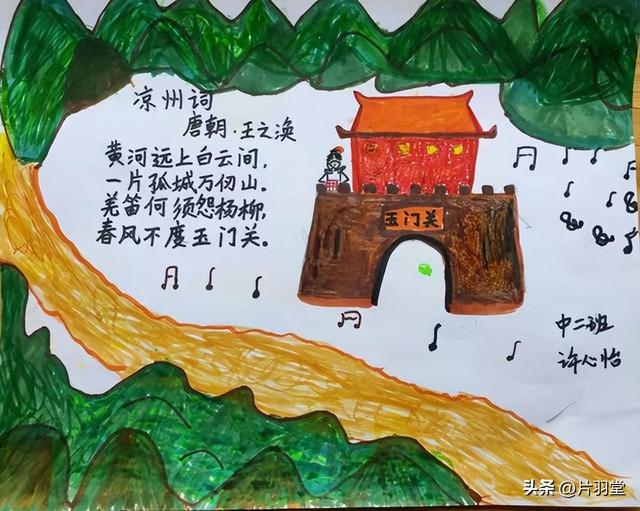 凉州词
唐朝·王之涣
黄河远上白云间，
一片孤城万仞山。
羌笛何须怨杨柳，
春风不度玉门关。
玉门关
中二班
许心怡
头条 @片羽堂